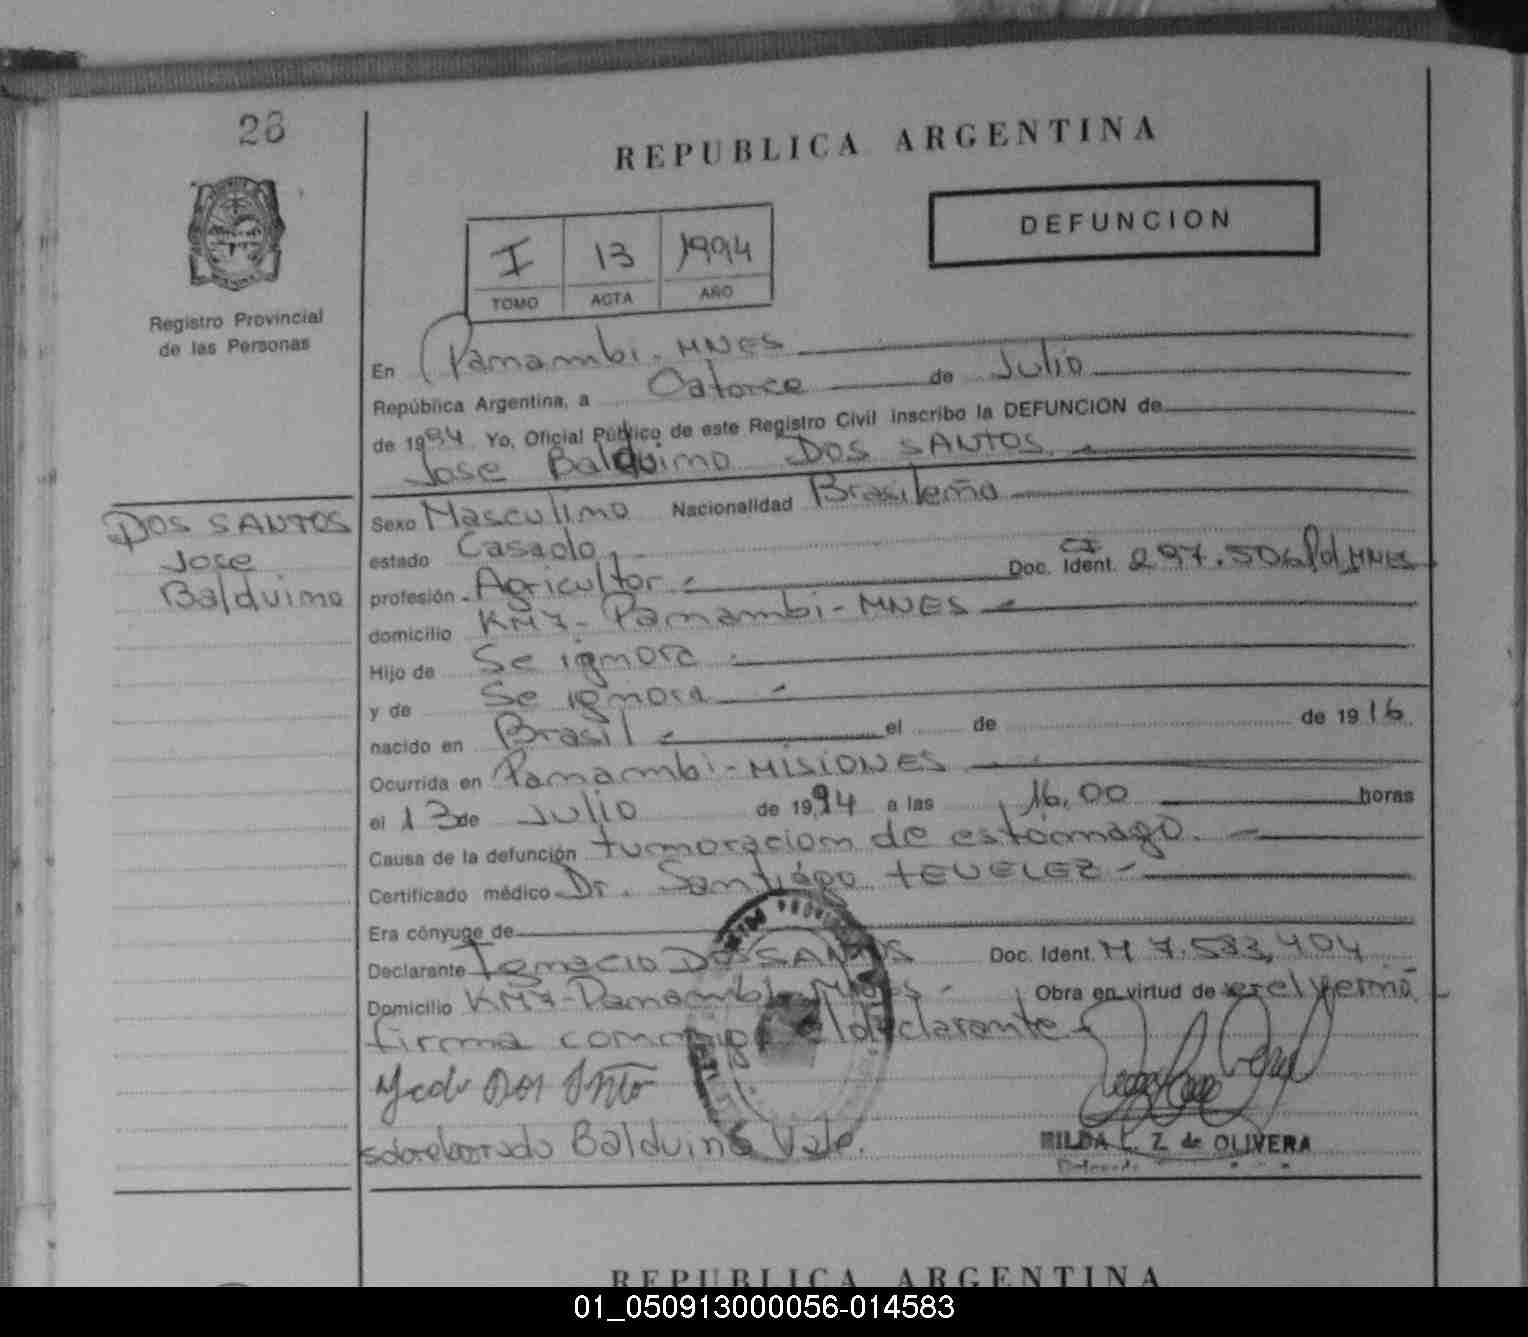 26
REPUBLICA ARGENTINA
DEFUNCION
I 13 1994
TOMO ACTA AÑO
Registro Provincial
de las Personas
En Panambi - MNES
República Argentina, a Catorce de Julio
de 1994 Yo, Oficial Público de este Registro Civil inscribo la DEFUNCION de
Jose Balduino DOS SANTOS
DOS SANTOS
Jose
Balduino
Sexo Masculino Nacionalidad Brasileña
estado Casado
profesión Agricultor Doc. Ident. CI 297.506 Pol MNES
domicilio KM 7 - Panambi - MNES
Hijo de Se ignora
y de Se ignora
nacido en Brasil el de de 1916
Ocurrida en Panambi - MISIONES
el 13 de Julio de 1994 a las 16,00 horas
Causa de la defunción tumoracion de estómago.
Certificado médico Dr. Santiago TEVELEZ
Era cónyuge de
Declarante Ignacio DOS SANTOS Doc. Ident. M 7.583,404
Domicilio KM 7 - Panambi - Mnes - Obra en virtud de ser el yerno
firma conmigo el declarante
Dos
sobreborrado Balduino Vale.
HILDA L. Z. de OLIVERA
Delegada
REPUBLICA ARGENTINA
01_050913000056-014583